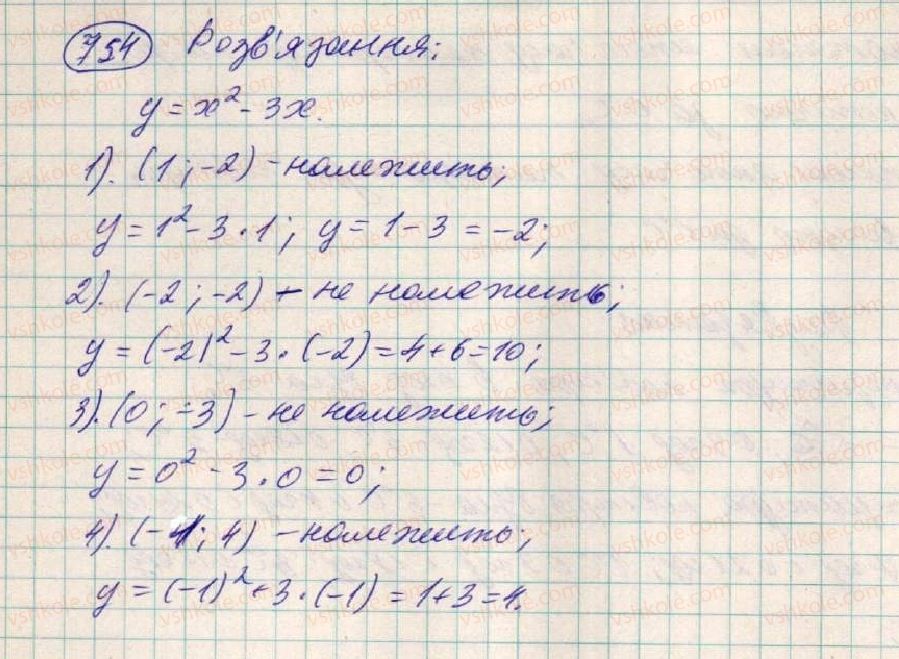 754 Розв'язання:
y = x² - 3x.
1). (1 ; -2) - належить;
y = 1² - 3 · 1 ; y = 1 - 3 = -2;
2). (-2 ; -2) - не належить;
y = (-2)² - 3 · (-2) = 4 + 6 = 10;
3). (0 ; -3) - не належить;
y = 0² - 3 · 0 = 0;
4). (-1; 4) - належить;
y = (-1)² + 3 · (-1) = 1 + 3 = 4.